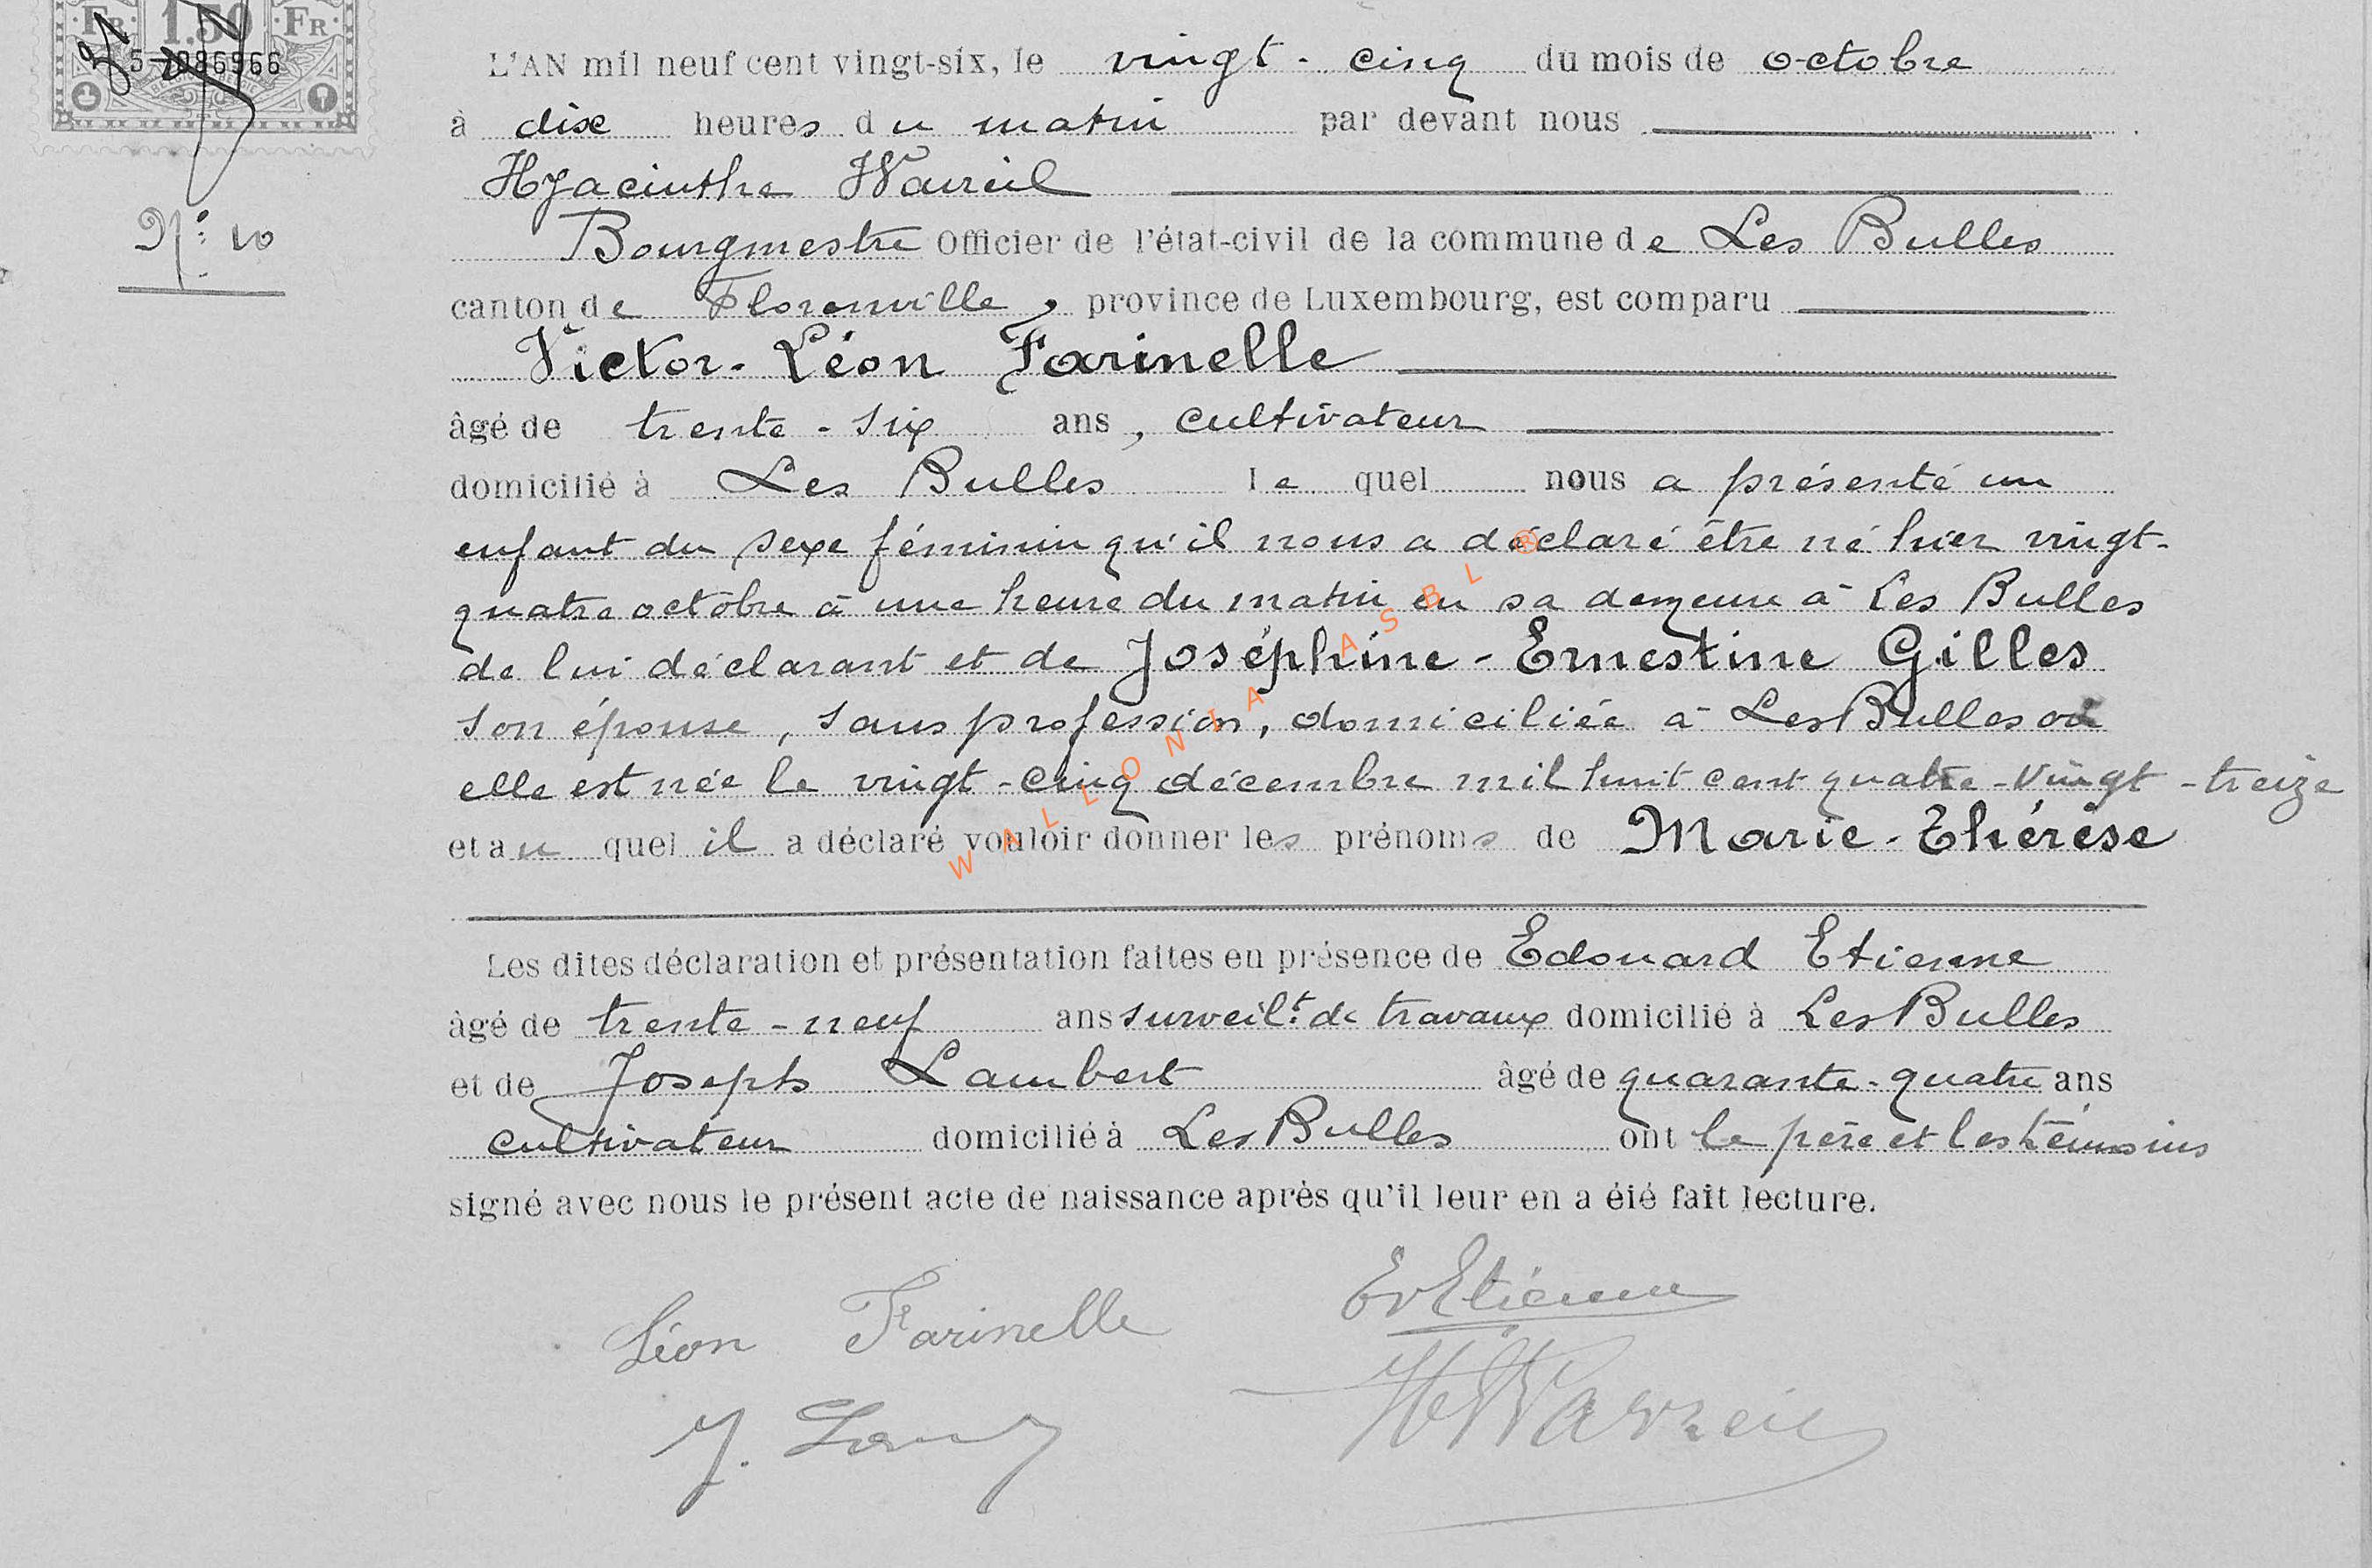 FR 1.50 FR
5-1086966
L'AN mil neuf cent vingt-six, le vingt-cinq du mois de octobre
à dix heures du matin par devant nous
Hyacinthe Wavreil
N° 10
Bourgmestre Officier de l'état-civil de la commune de Les Bulles
canton de Florenville, province de Luxembourg, est comparu
Victor-Léon Farinelle
âgé de trente-six ans, cultivateur
domicilié à Les Bulles lequel nous a présenté un
enfant du sexe féminin qu'il nous a déclaré être né hier vingt-
quatre octobre à une heure du matin en sa demeure à Les Bulles
de lui déclarant et de Joséphine-Ernestine Gilles
son épouse, sans profession, domiciliée à Les Bulles où
elle est née le vingt-cinq décembre mil huit cent quatre-vingt-treize
et au quel il a déclaré vouloir donner les prénoms de Marie-Thérèse
WALLONIA ASBL ®
Les dites déclaration et présentation faites en présence de Edouard Etienne
âgé de trente-neuf ans surveilt. de travaux domicilié à Les Bulles
et de Joseph Lambert âgé de quarante-quatre ans
cultivateur domicilié à Les Bulles ont le père et les témoins
signé avec nous le présent acte de naissance après qu'il leur en a été fait lecture.
Léon Farinelle
Etienne
J.
H Wavreil